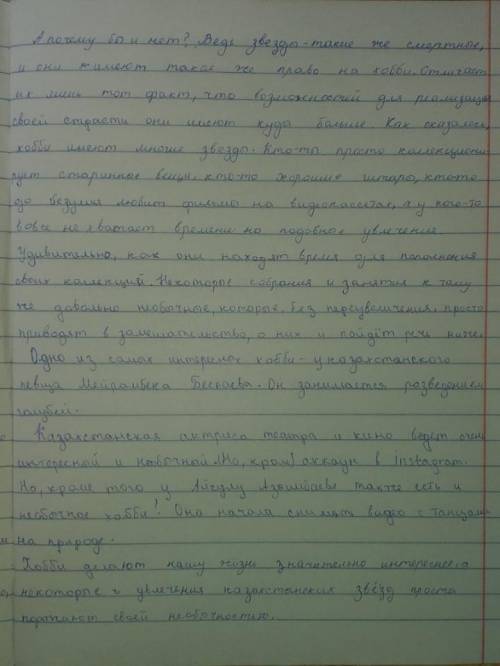 А почему бы и нет? Ведь звезды - такие же смертные,
и они имеют такое же право на хобби. Отличает
их лишь тот факт, что возможностей для реализации
своей страсти они имеют куда больше. Как оказалось,
хобби имеют многие звезды. Кто-то просто коллекциони
рует старинные вещи, кто-то хорошие кто-то
до безумия любит фильмы на видеокассетах, а у кого-то
вовсе не хватает времени на подобное увлечение.
Удивительно, как они находят время для пополнения
своих колекций. Некоторые собрания и занятия к тому
же довольно необычные, которые, без переувеличения, просто
приводят в замешательство, о них и пойдёт речь ниже.
Одно из самых интерных хобби - у казахстанского
певца Мейрамбека Беспаева. Он занимается разведением
голубей.
Казахстанская актриса театра и кино ведет очень
интересной и необычной аккаун в instagram.
Но, кроме того у Айгулу также есть и
необычное хобби! Она начала снимать видео с танцами
на природе.
Хобби делают нашу жизнь значительно интереснее, а
некоторые и увлечения казахстанских звёзд проста
поражают своей необычностию.